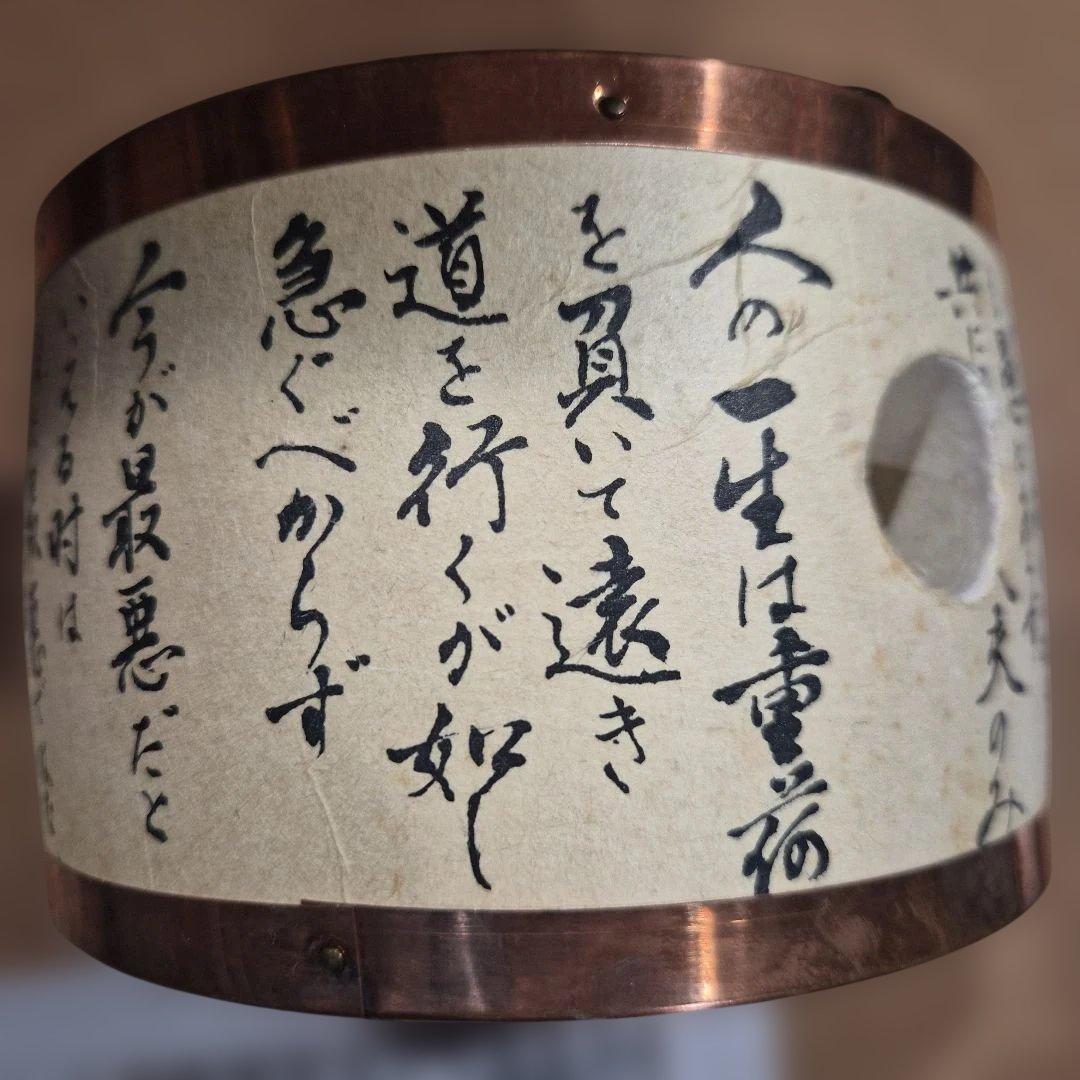 共に
人の一生は重荷
を負いて遠き
道を行くが如し
急ぐべからず
今が最悪だと
いえる時は